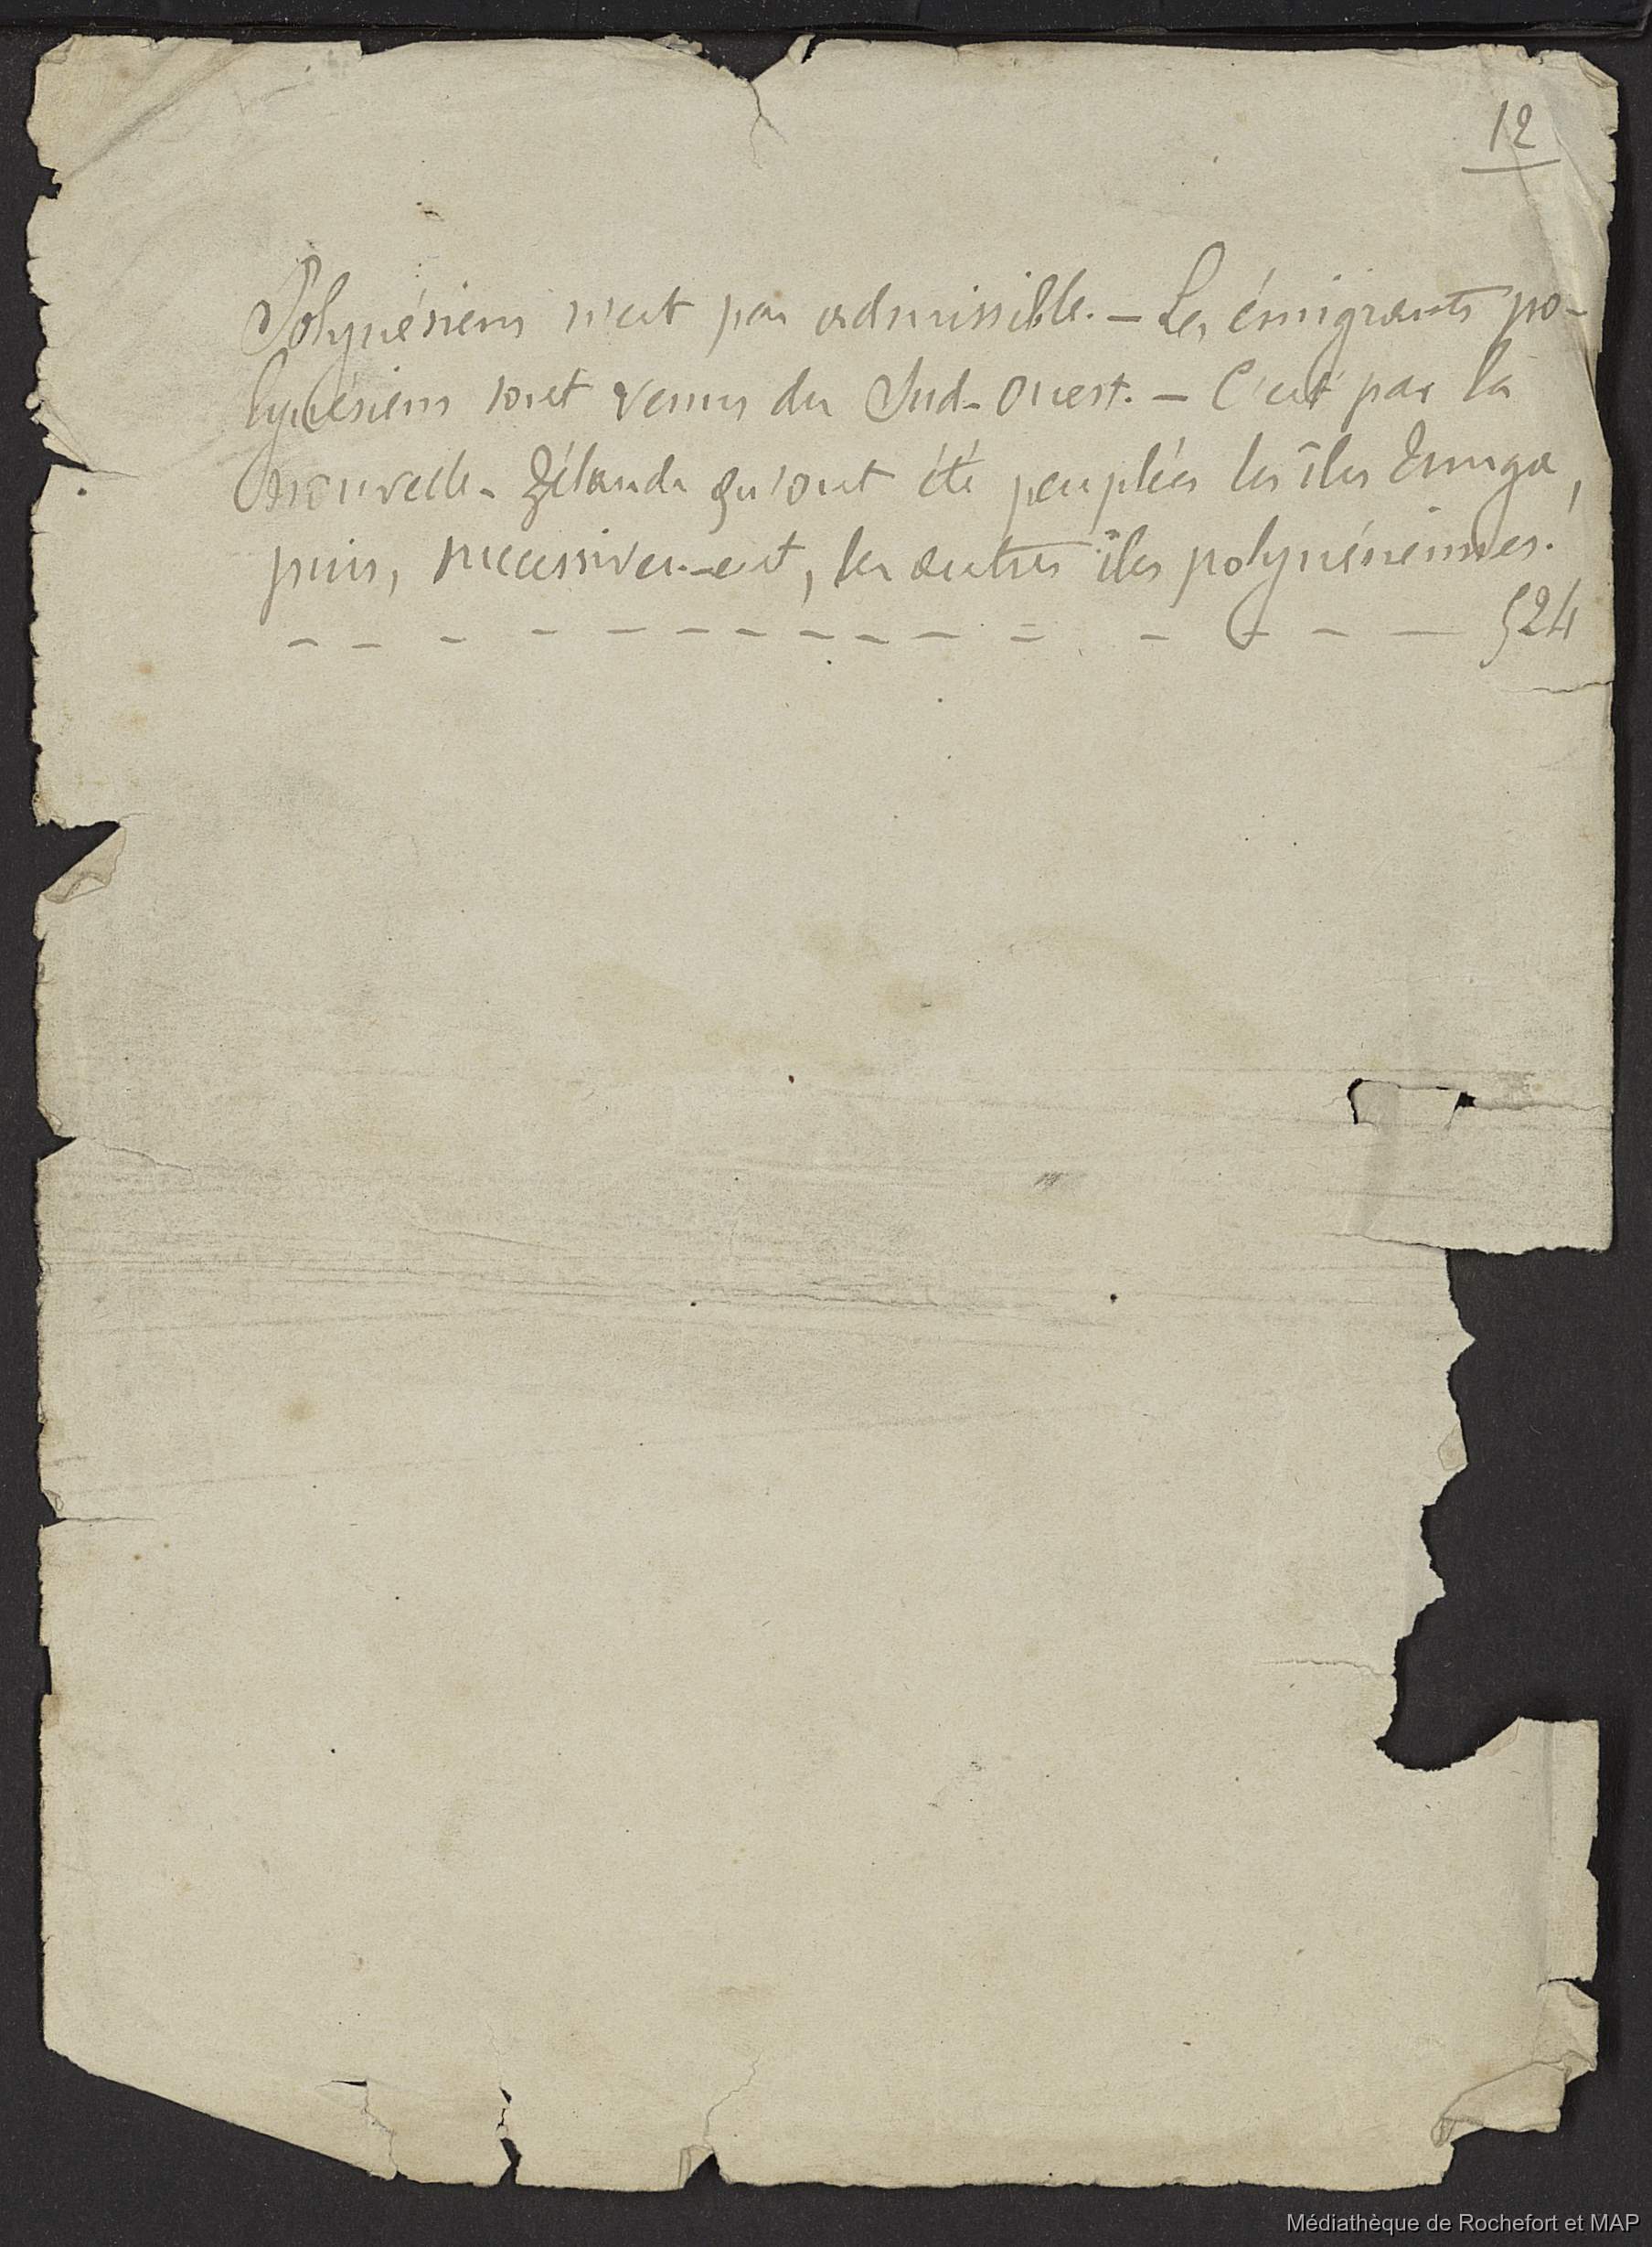 12
Polynésiens n'est pas admissible. — Les émigrants po-
lynésiens sont venus du Sud-Ouest. — C'est par la
nouvelle-Zélande qu'ont été peuplées les îles Tonga,
puis, successivement, les autres îles polynésiennes.
- - - - - - - - - - - - - - - - 524
Médiathèque de Rochefort et MAP